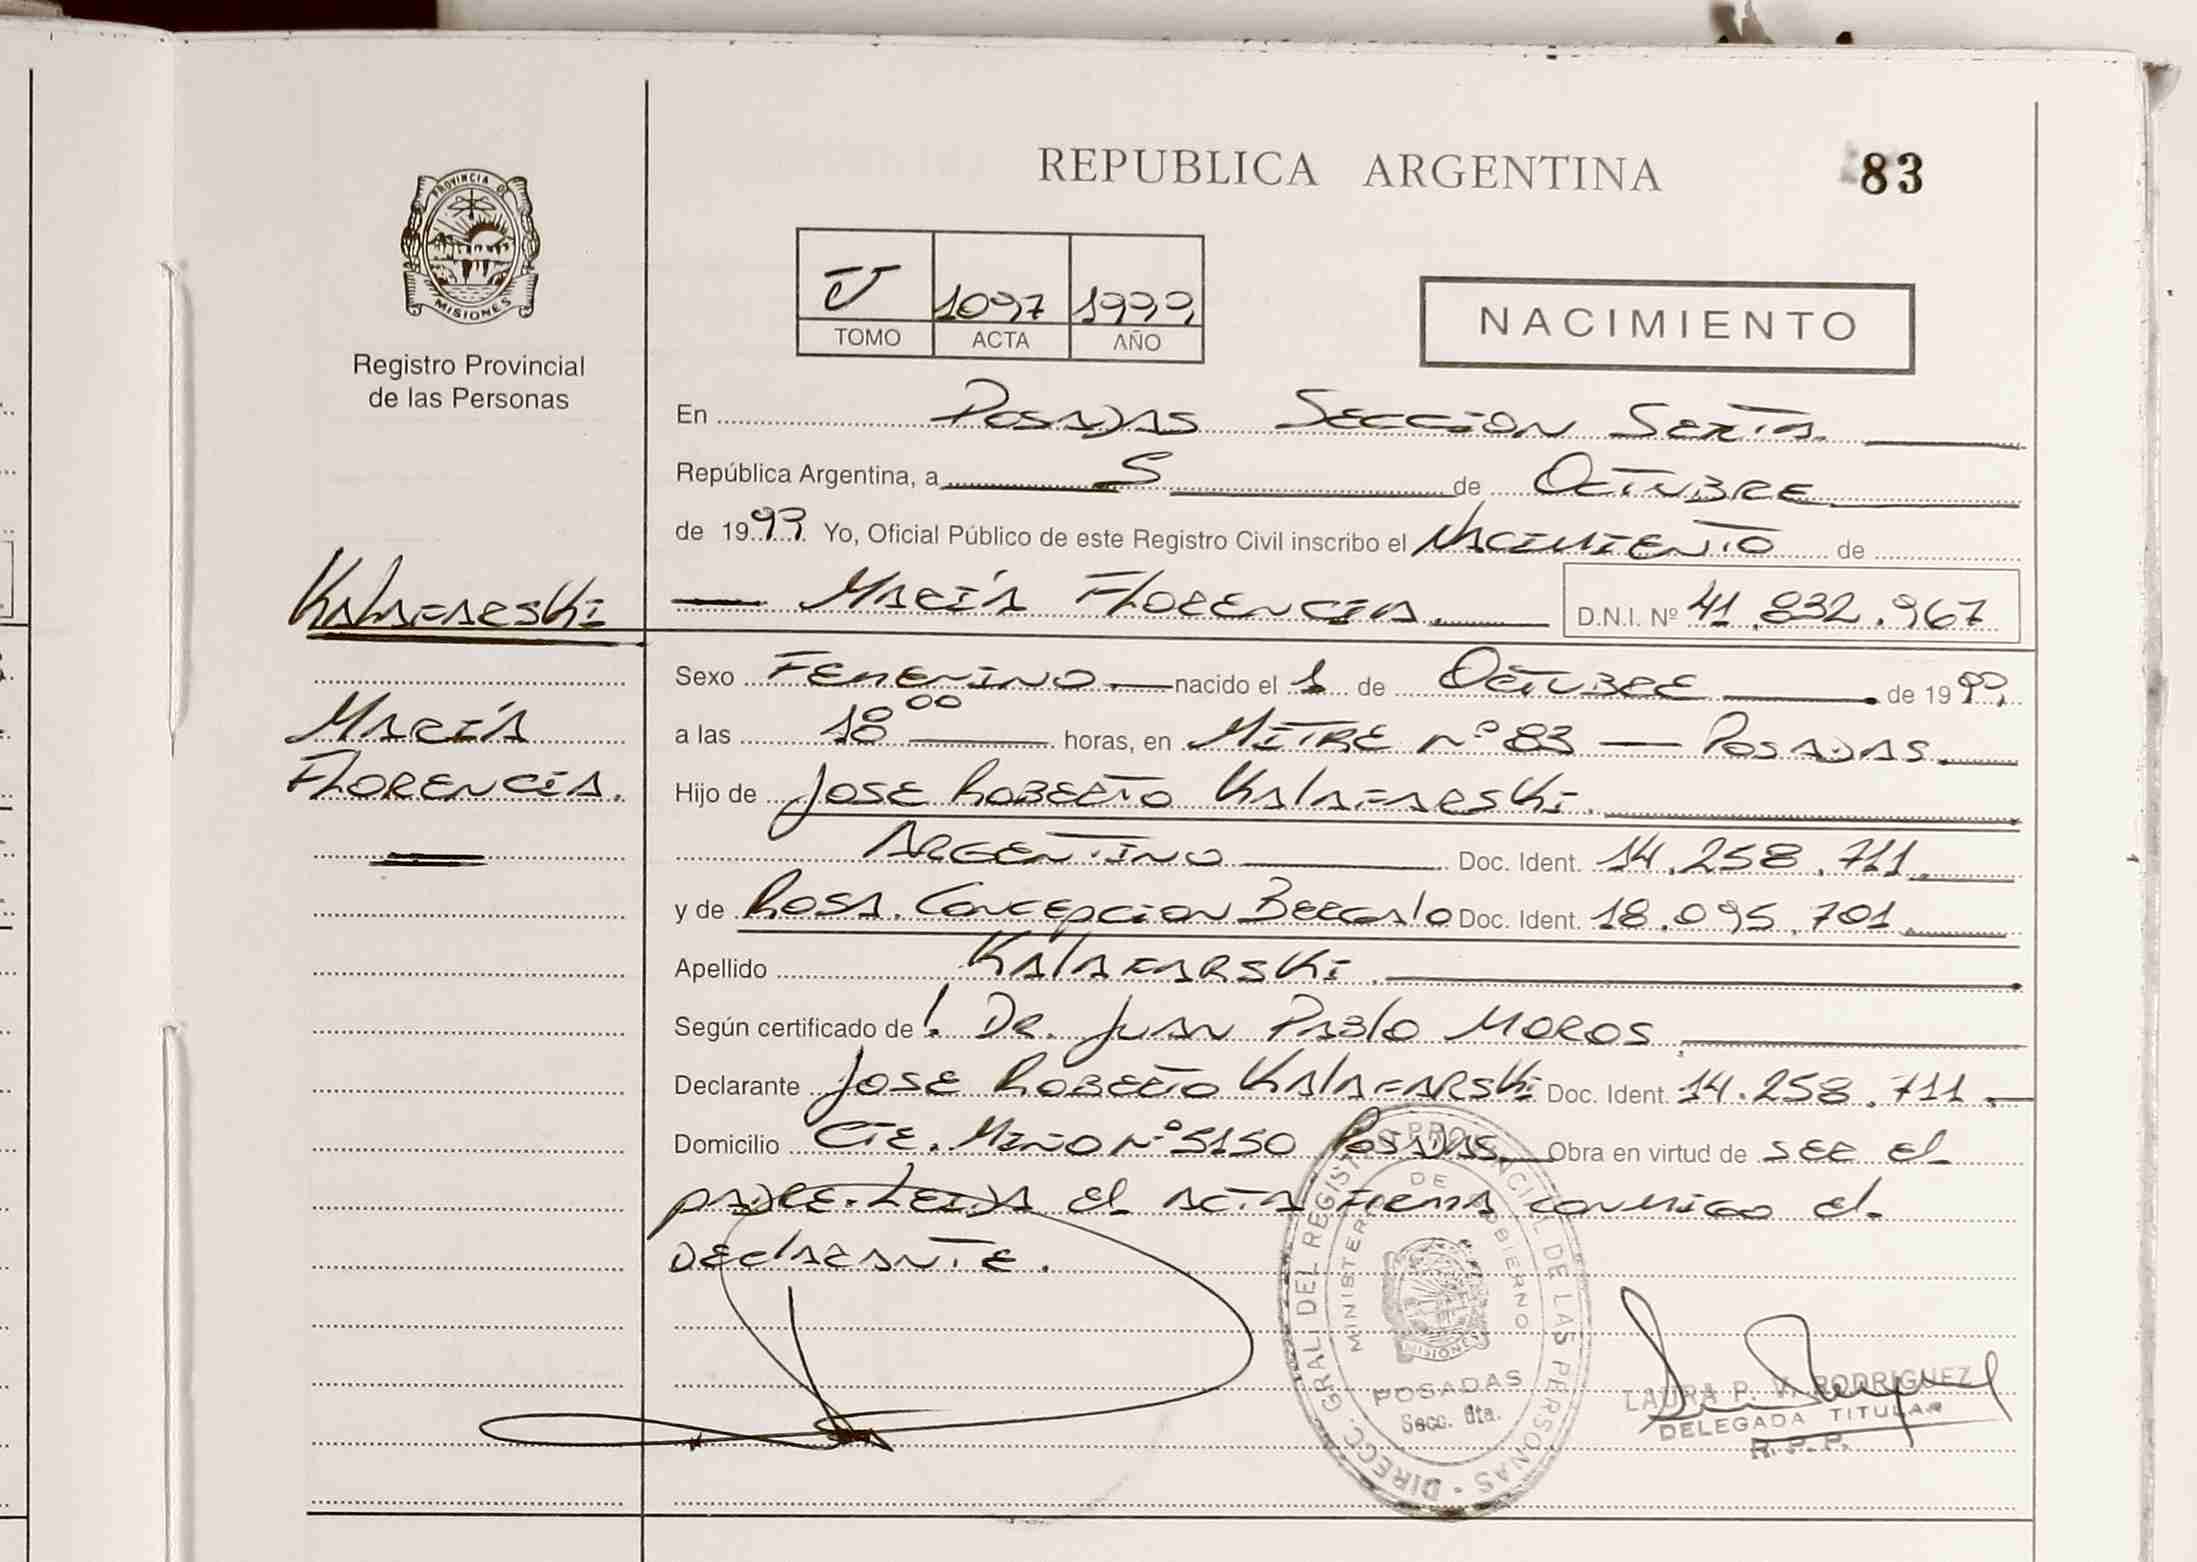 PROVINCIA DE
MISIONES
Registro Provincial
de las Personas
REPUBLICA ARGENTINA
83
1097 1999
TOMO ACTA AÑO
NACIMIENTO
En POSADAS SECCION SEXTA.
República Argentina, a 5 de OCTUBRE
de 1999 Yo, Oficial Público de este Registro Civil inscribo el NACIMIENTO de
KALAFARSKI
MARÍA FLORENCIA. D.N.I. Nº 41.832.967
Sexo FEMENINO. nacido el 1 de OCTUBRE de 1999
MARÍA
a las 18 00 horas, en MITRE Nº 83 — POSADAS.
FLORENCIA.
Hijo de JOSE ROBERTO KALAFARSKI.
ARGENTINO Doc. Ident. 14.258.711.
y de ROSA CONCEPCION BERGALO Doc. Ident. 18.095.701.
Apellido KALAFARSKI.
Según certificado de DR. JUAN PABLO MOROS
Declarante JOSE ROBERTO KALAFARSKI Doc. Ident. 14.258.711.
Domicilio CTE. MIÑO Nº 5150 POSADAS. Obra en virtud de SER EL
PADRE. LEIDA EL ACTA FIRMA CONMIGO EL
DECLARANTE.
DIRECC. GRAL DEL REGISTRO PROVINCIAL DE LAS PERSONAS
MINISTERIO DE GOBIERNO
POSADAS
Secc. 6ta.
LAURA P. V. RODRIGUEZ
DELEGADA TITULAR
R. P. P.